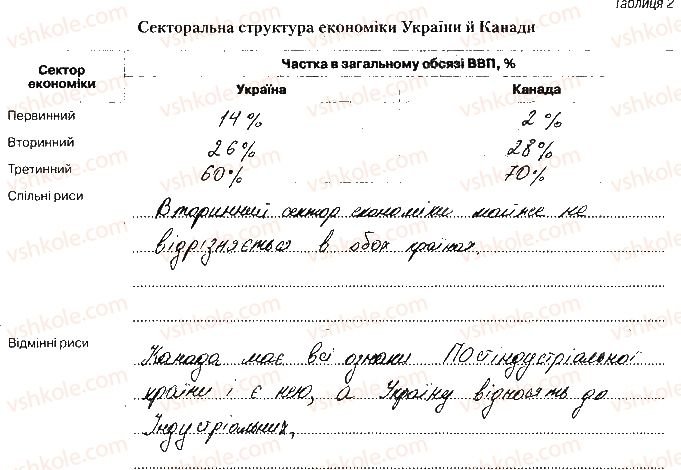 Таблиця 2
Секторальна структура економіки України й Канади
Сектор економіки
Частка в загальному обсязі ВВП, %
Україна Канада
Первинний 14% 2%
Вторинний 26% 28%
Третинний 60% 70%
Спільні риси
Вторинний сектор економіки майже не
відрізняється в обох країнах.
Відмінні риси
Канада має всі ознаки Постіндустріальної
країни і є нею, а Україну відносять до
Індустріальних,
vshkole.com